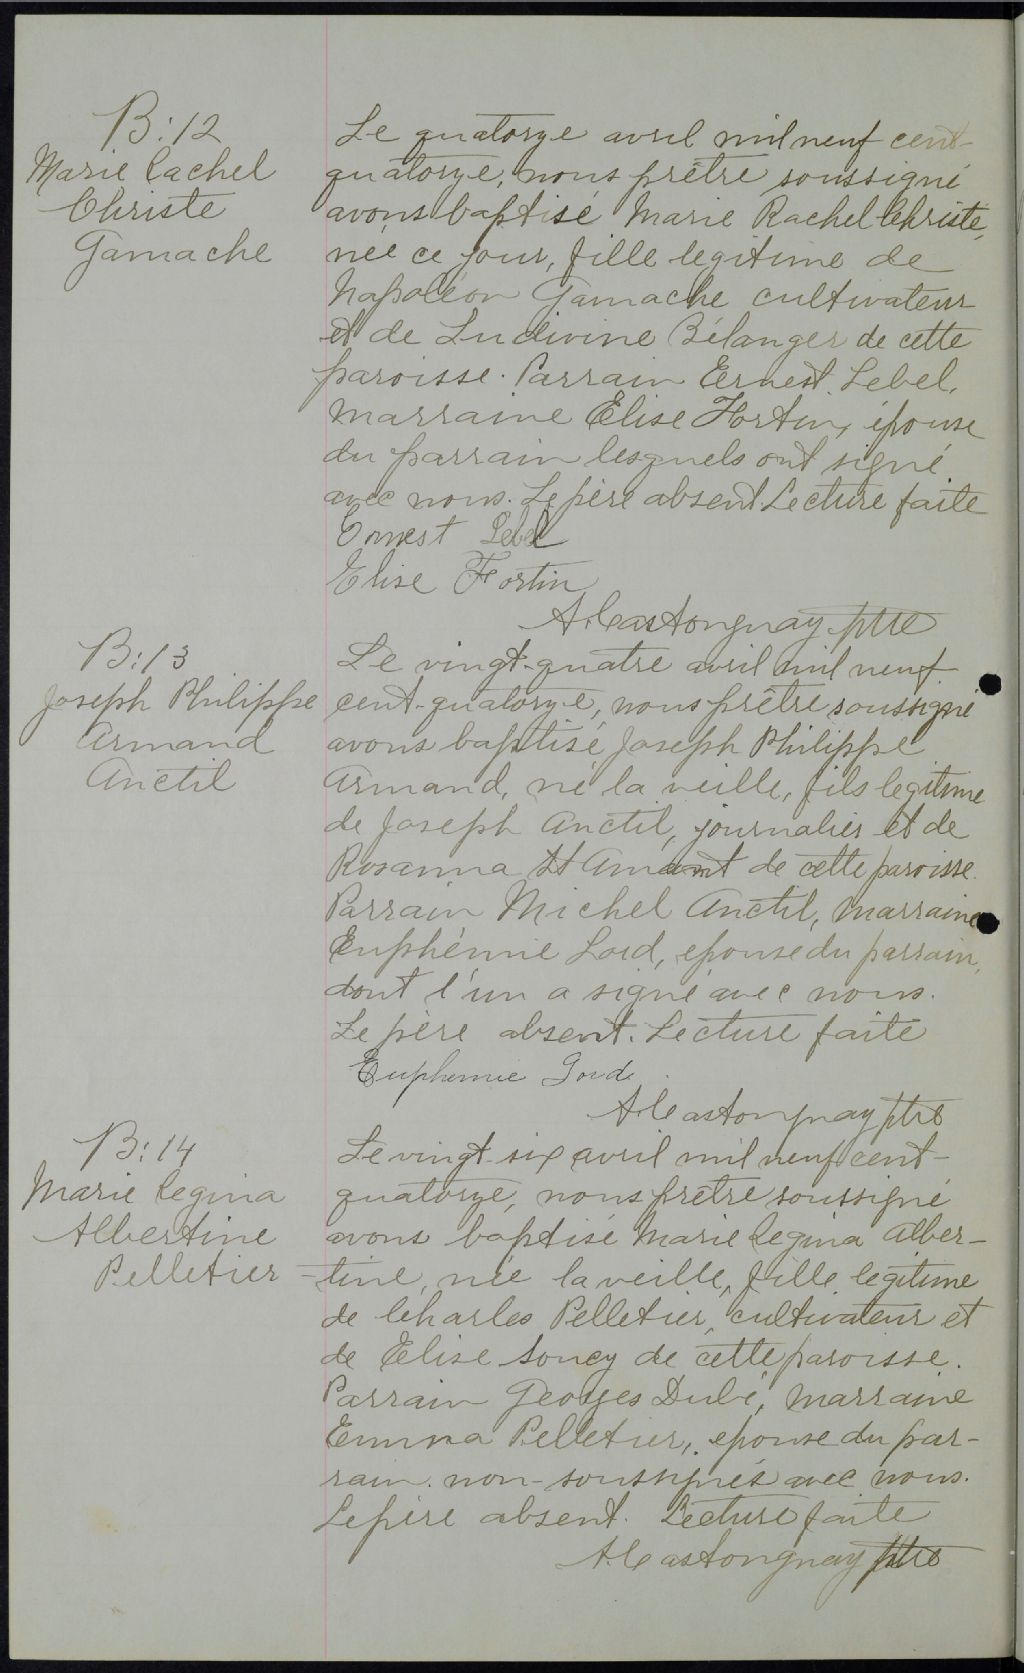 B:12
Marie Rachel
Christe
Gamache
Le quatorze avril mil neuf cent-
quatorze, nous prêtre soussigné
avons baptisé Marie Rachel Christe,
née ce jour, fille legitime de
Napoléon Gamache cultivateur
et de Ludivine Bélanger de cette
paroisse. Parrain Ernest Lebel,
marraine Elise Fortin, épouse
du parrain lesquels ont signé
avec nous. Le père absent. Lecture faite
Ernest Lebel
Elise Fortin
A. Castonguay ptre
B:13
Joseph Philippe
Armand
Anctil
Le vingt-quatre avril mil neuf
cent-quatorze, nous prêtre soussigné
avons baptisé Joseph Philippe
Armand, né la veille, fils legitime
de Joseph Anctil, journalier et de
Rosanna St Amant de cette paroisse.
Parrain Michel Anctil, marraine
Euphémie Lord, epouse du parrain,
dont l'un a signé avec nous.
Le père absent. Lecture faite
Euphemie Lord
A. Castonguay ptre
B:14
Marie Regina
Albertine
Pelletier
Le vingt-six avril mil neuf cent-
quatorze, nous prêtre soussigné
avons baptisé Marie Regina Alber-
tine, née la veille, fille legitime
de Charles Pelletier, cultivateur et
de Elise Soucy de cette paroisse.
Parrain Georges Dubé, marraine
Emma Pelletier, epouse du par-
rain non-soussignés avec nous.
Le père absent. Lecture faite
A. Castonguay ptre